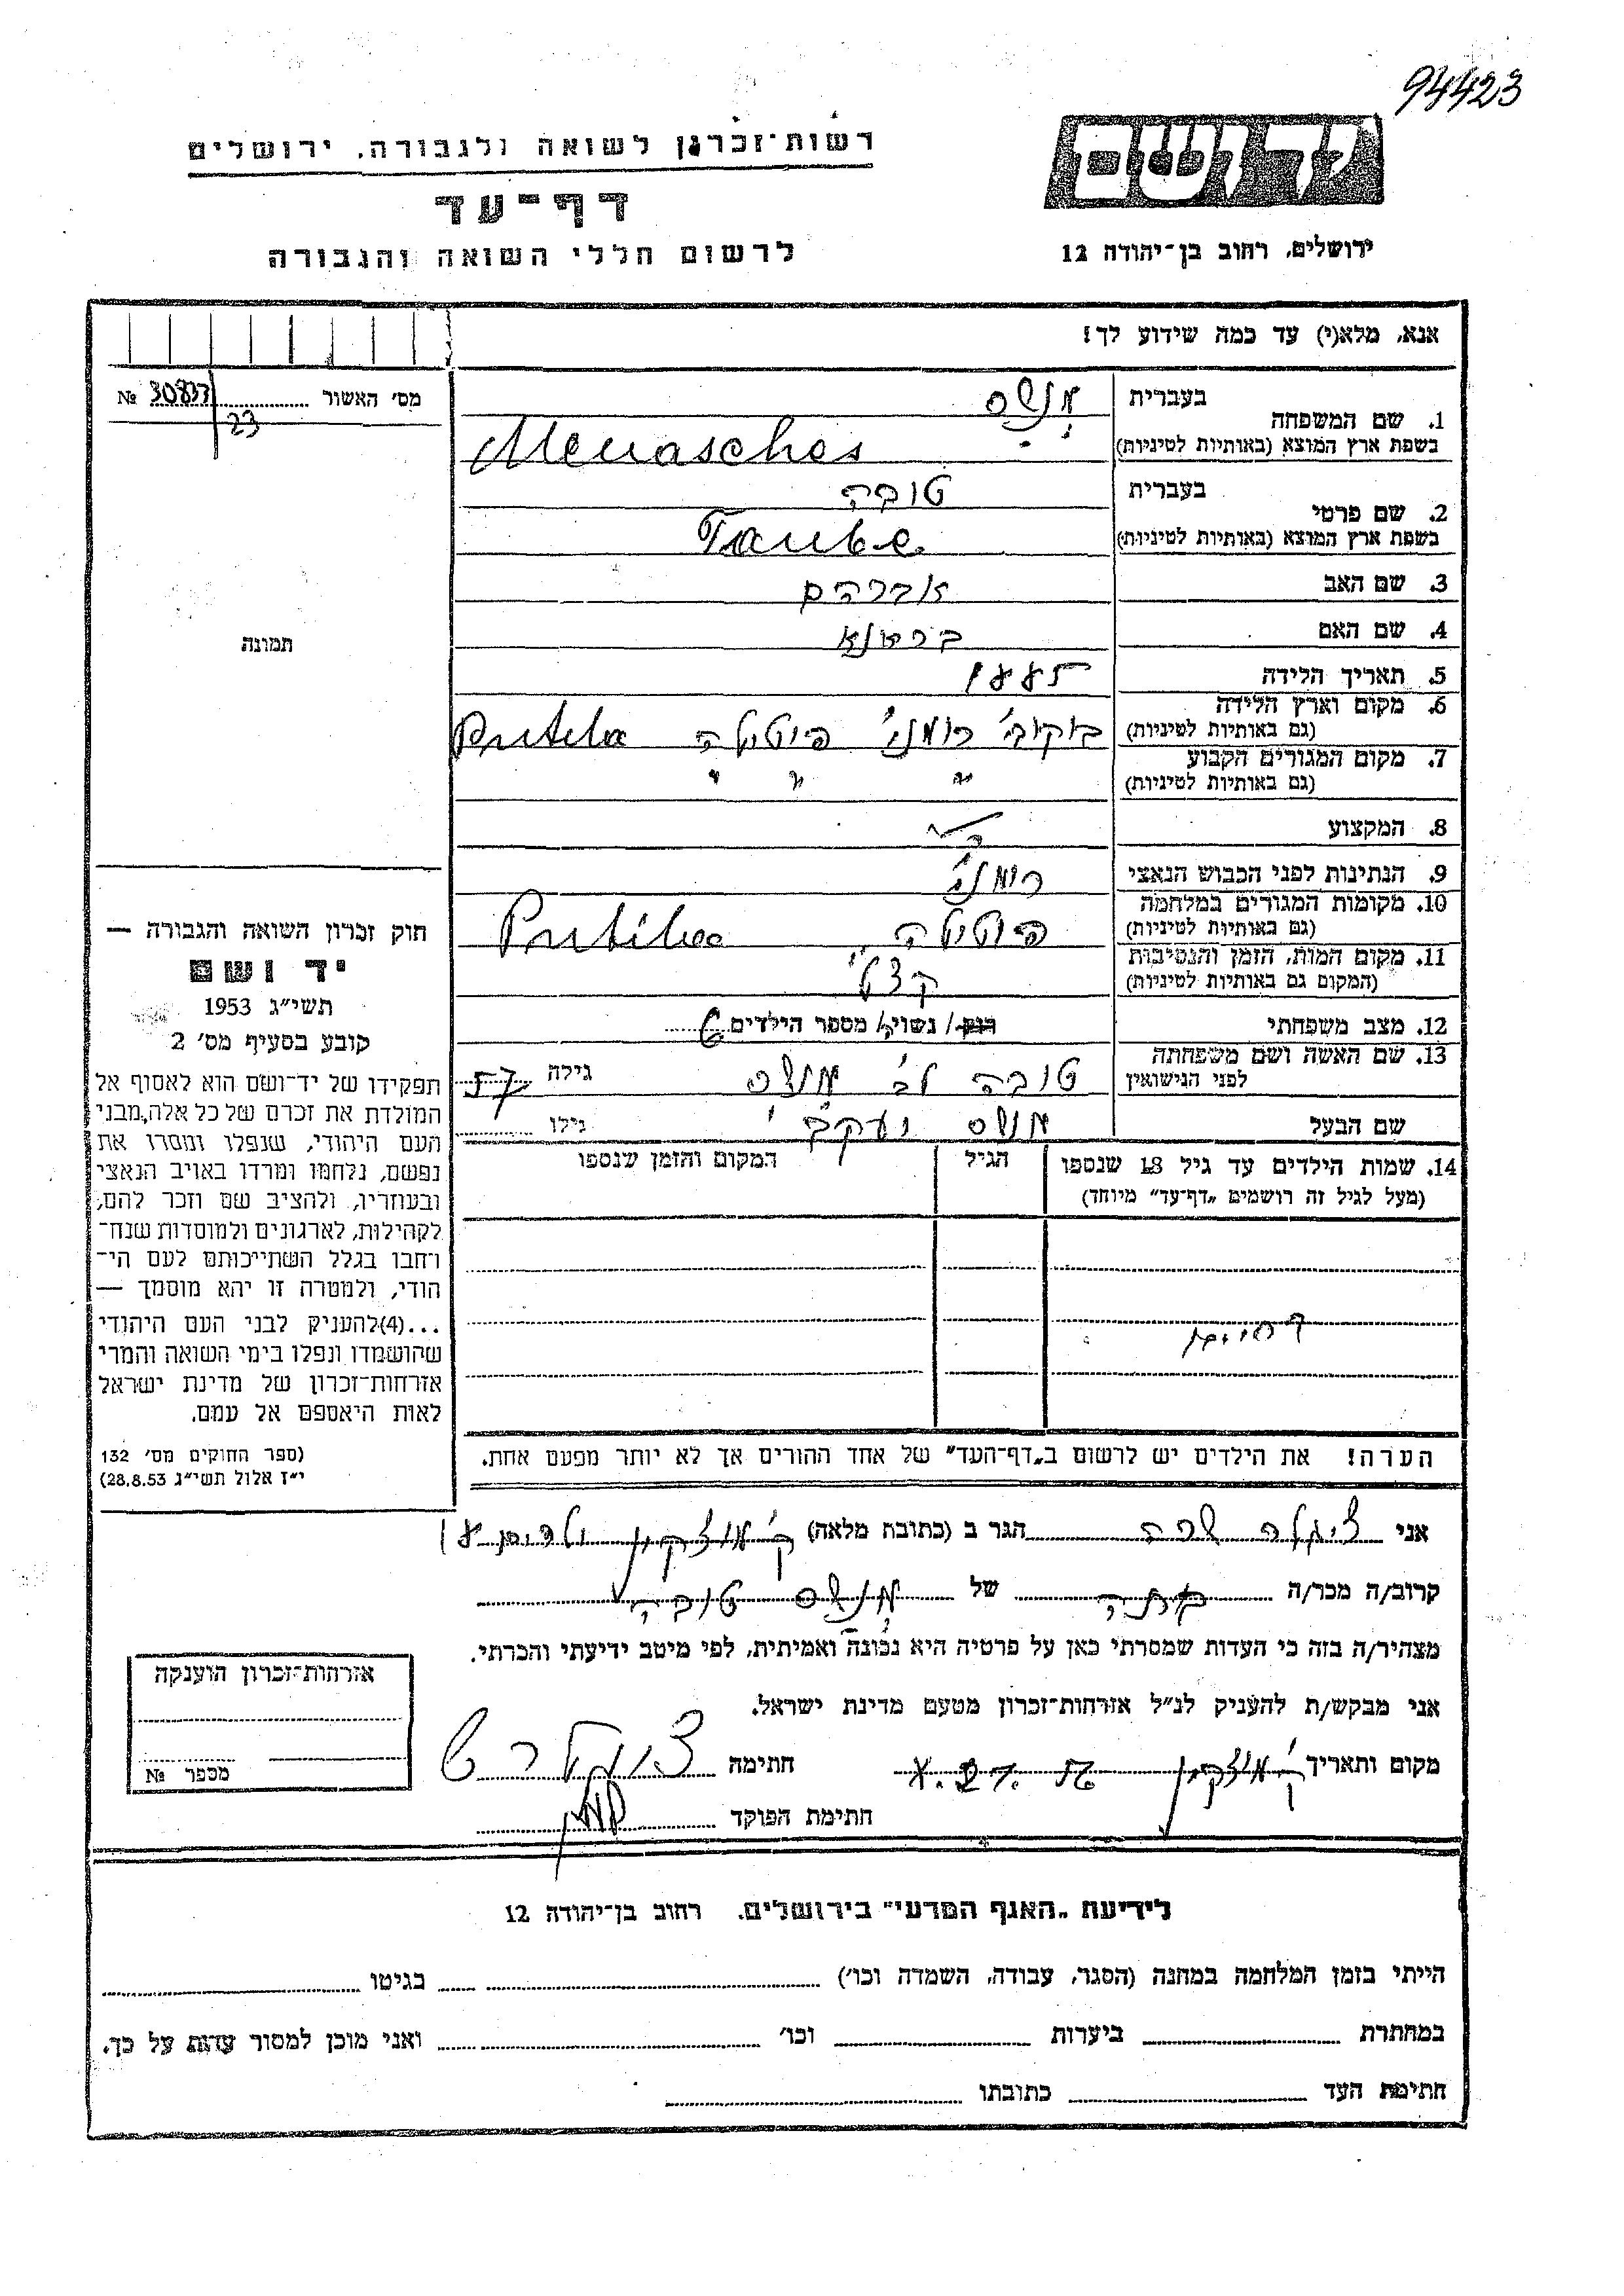 94423
יד ושם
רשות־זכרון לשואה ולגבורה, ירושלים
דף־עד
לרשום חללי השואה והגבורה
ירושלים, רחוב בן־יהודה 12
אנא, מלא(י) עד כמה שידוע לך!
מס׳ האשור № 30837
23
1. שם המשפחה
בעברית מנשס
בשפת ארץ המוצא (באותיות לטיניות) Menasches
2. שם פרטי
בעברית טובה
בשפת ארץ המוצא (באותיות לטיניות) Taube
3. שם האב אברהם
4. שם האם
5. תאריך הלידה 1885
6. מקום וארץ הלידה
(גם באותיות לטיניות) בוקוב׳ רומני׳ פוטילה Putila
7. מקום המגורים הקבוע
(גם באותיות לטיניות) " " "
8. המקצוע
9. הנתינות לפני הכבוש הנאצי רומני׳
10. מקומות המגורים במלחמה
(גם באותיות לטיניות) פוטילה Putila
11. מקום המות, הזמן והנסיבות
(המקום גם באותיות לטיניות)
12. מצב משפחתי רווק/ נשוי/ מספר הילדים 6
13. שם האשה ושם משפחתה
לפני הנישואין טובה לב׳ מנשס גילה 57
שם הבעל מנשס יעקב גילו
14. שמות הילדים עד גיל 18 שנספו
(מעל לגיל זה רושמים „דף־עד״ מיוחד)
הגיל
המקום והזמן שנספו
הערה! את הילדים יש לרשום ב„דף־העד״ של אחד ההורים אך לא יותר מפעם אחת.
תמונה
חוק זכרון השואה והגבורה —
יד ושם
תשי״ג 1953
קובע בסעיף מס׳ 2
תפקידו של יד־ושם הוא לאסוף אל
המולדת את זכרם של כל אלה, מבני
העם היהודי, שנפלו ומסרו את
נפשם, נלחמו ומרדו באויב הנאצי
ובעוזריו, ולהציב שם וזכר להם,
לקהילות, לארגונים ולמוסדות שנח־
רבו בגלל השתייכותם לעם הי־
הודי, ולמטרה זו יהא מוסמך —
...(4)להעניק לבני העם היהודי
שהושמדו ונפלו בימי השואה והמרי
אזרחות־זכרון של מדינת ישראל
לאות היאספם אל עמם.
(ספר החוקים מס׳ 132
י״ז אלול תשי״ג 28.8.53)
אני ציגלר שרה הגר ב (כתובת מלאה) ק׳ מוצקין
קרוב/ה מכר/ה בתה של מנשס טובה
מצהיר/ה בזה כי העדות שמסרתי כאן על פרטיה היא נכונה ואמיתית, לפי מיטב ידיעתי והכרתי.
אני מבקש/ת להעניק לנ״ל אזרחות־זכרון מטעם מדינת ישראל.
מקום ותאריך ק׳ מוצקין חתימה
חתימת הפוקד
אזרחות־זכרון הוענקה
מספר №
לידיעת „האגף המדעי״ בירושלים, רחוב בן־יהודה 12
הייתי בזמן המלחמה במחנה (הסגר, עבודה, השמדה וכו׳) בגיטו
במחתרת ביערות וכו׳ ואני מוכן למסור עדות על כך.
חתימת העד כתובתו